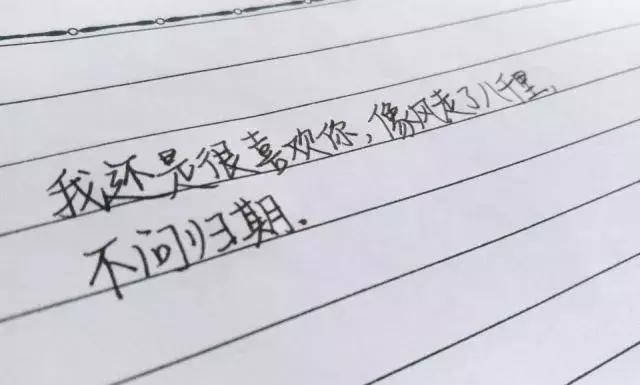 我还是很喜欢你，像风走了八千里，
不问归期.